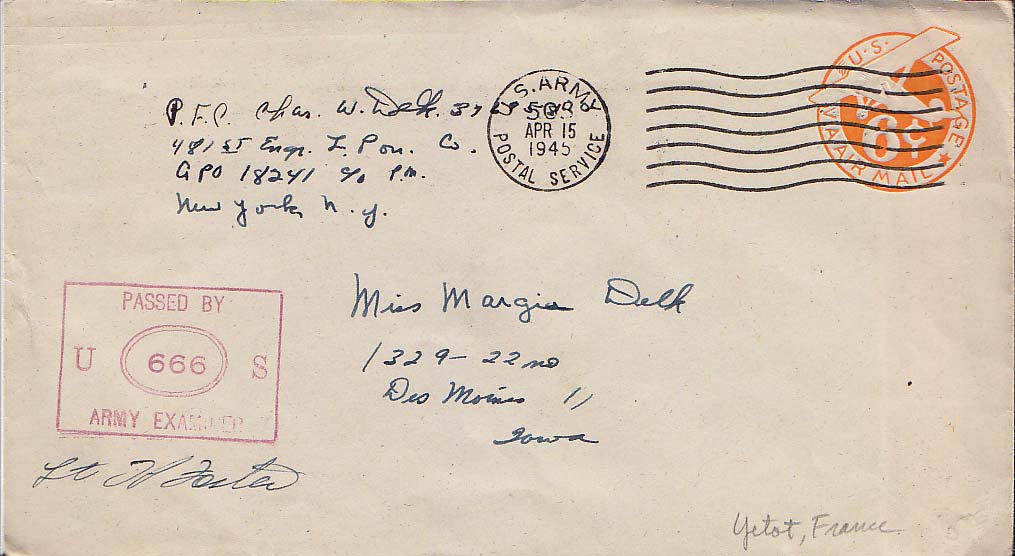 P.F.C. Chas. W. Delk.
481 ST Engr. L. Pon. Co.
APO 18241 c/o P.m.
New York, N. Y.
U.S. ARMY
POSTAL SERVICE
APR 15
1945
U.S. POSTAGE
6¢
VIA AIR MAIL
PASSED BY
U 666 S
ARMY EXAMINER
Lt W Foster
Miss Margie Delk
1329 - 22 nd
Des Moines 11
Iowa
Yetot, France